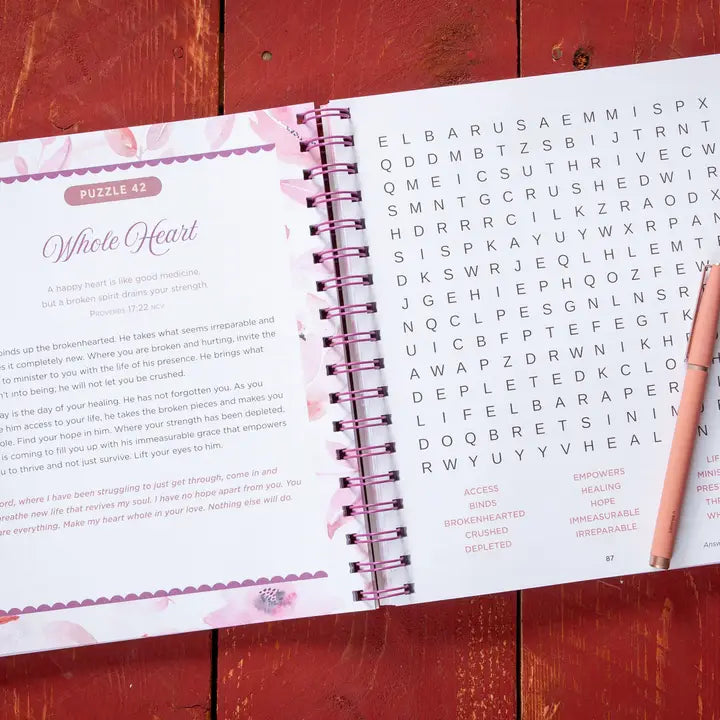 PUZZLE 42
Whole Heart
A happy heart is like good medicine,
but a broken spirit drains your strength.
PROVERBS 17:22 NCV
binds up the brokenhearted. He takes what seems irreparable and
s it completely new. Where you are broken and hurting, invite the
to minister to you with the life of his presence. He brings what
n't into being; he will not let you be crushed.
ay is the day of your healing. He has not forgotten you. As you
e him access to your life, he takes the broken pieces and makes you
ole. Find your hope in him. Where your strength has been depleted,
is coming to fill you up with his immeasurable grace that empowers
u to thrive and not just survive. Lift your eyes to him.
ord, where I have been struggling to just get through, come in and
breathe new life that revives my soul. I have no hope apart from you. You
are everything. Make my heart whole in your love. Nothing else will do.
E L B A R U S A E M M I S P X
Q D D M B T Z S B I J T R N T
Q M E I C S U T H R I V E C W
S M N T G C R U S H E D W I R
H D R R R C I L K Z R A O D X
S I S P K A Y U Y W X R P A N
D K S W R J E Q L H L E M T
J G E H I E P H Q O Z F E W
N Q C L P E S G N L N S R
U I C B F P T E F E G T K
A W A P Z D R W N I K H
D E P L E T E D K C L O
L I F E L B A R A P E R
D O Q B R E T S I N I M
R W Y U Y Y V H E A L N
ACCESS
BINDS
BROKENHEARTED
CRUSHED
DEPLETED
EMPOWERS
HEALING
HOPE
IMMEASURABLE
IRREPARABLE
LIF
MINIS
PRES
TH
WH
87
Answ